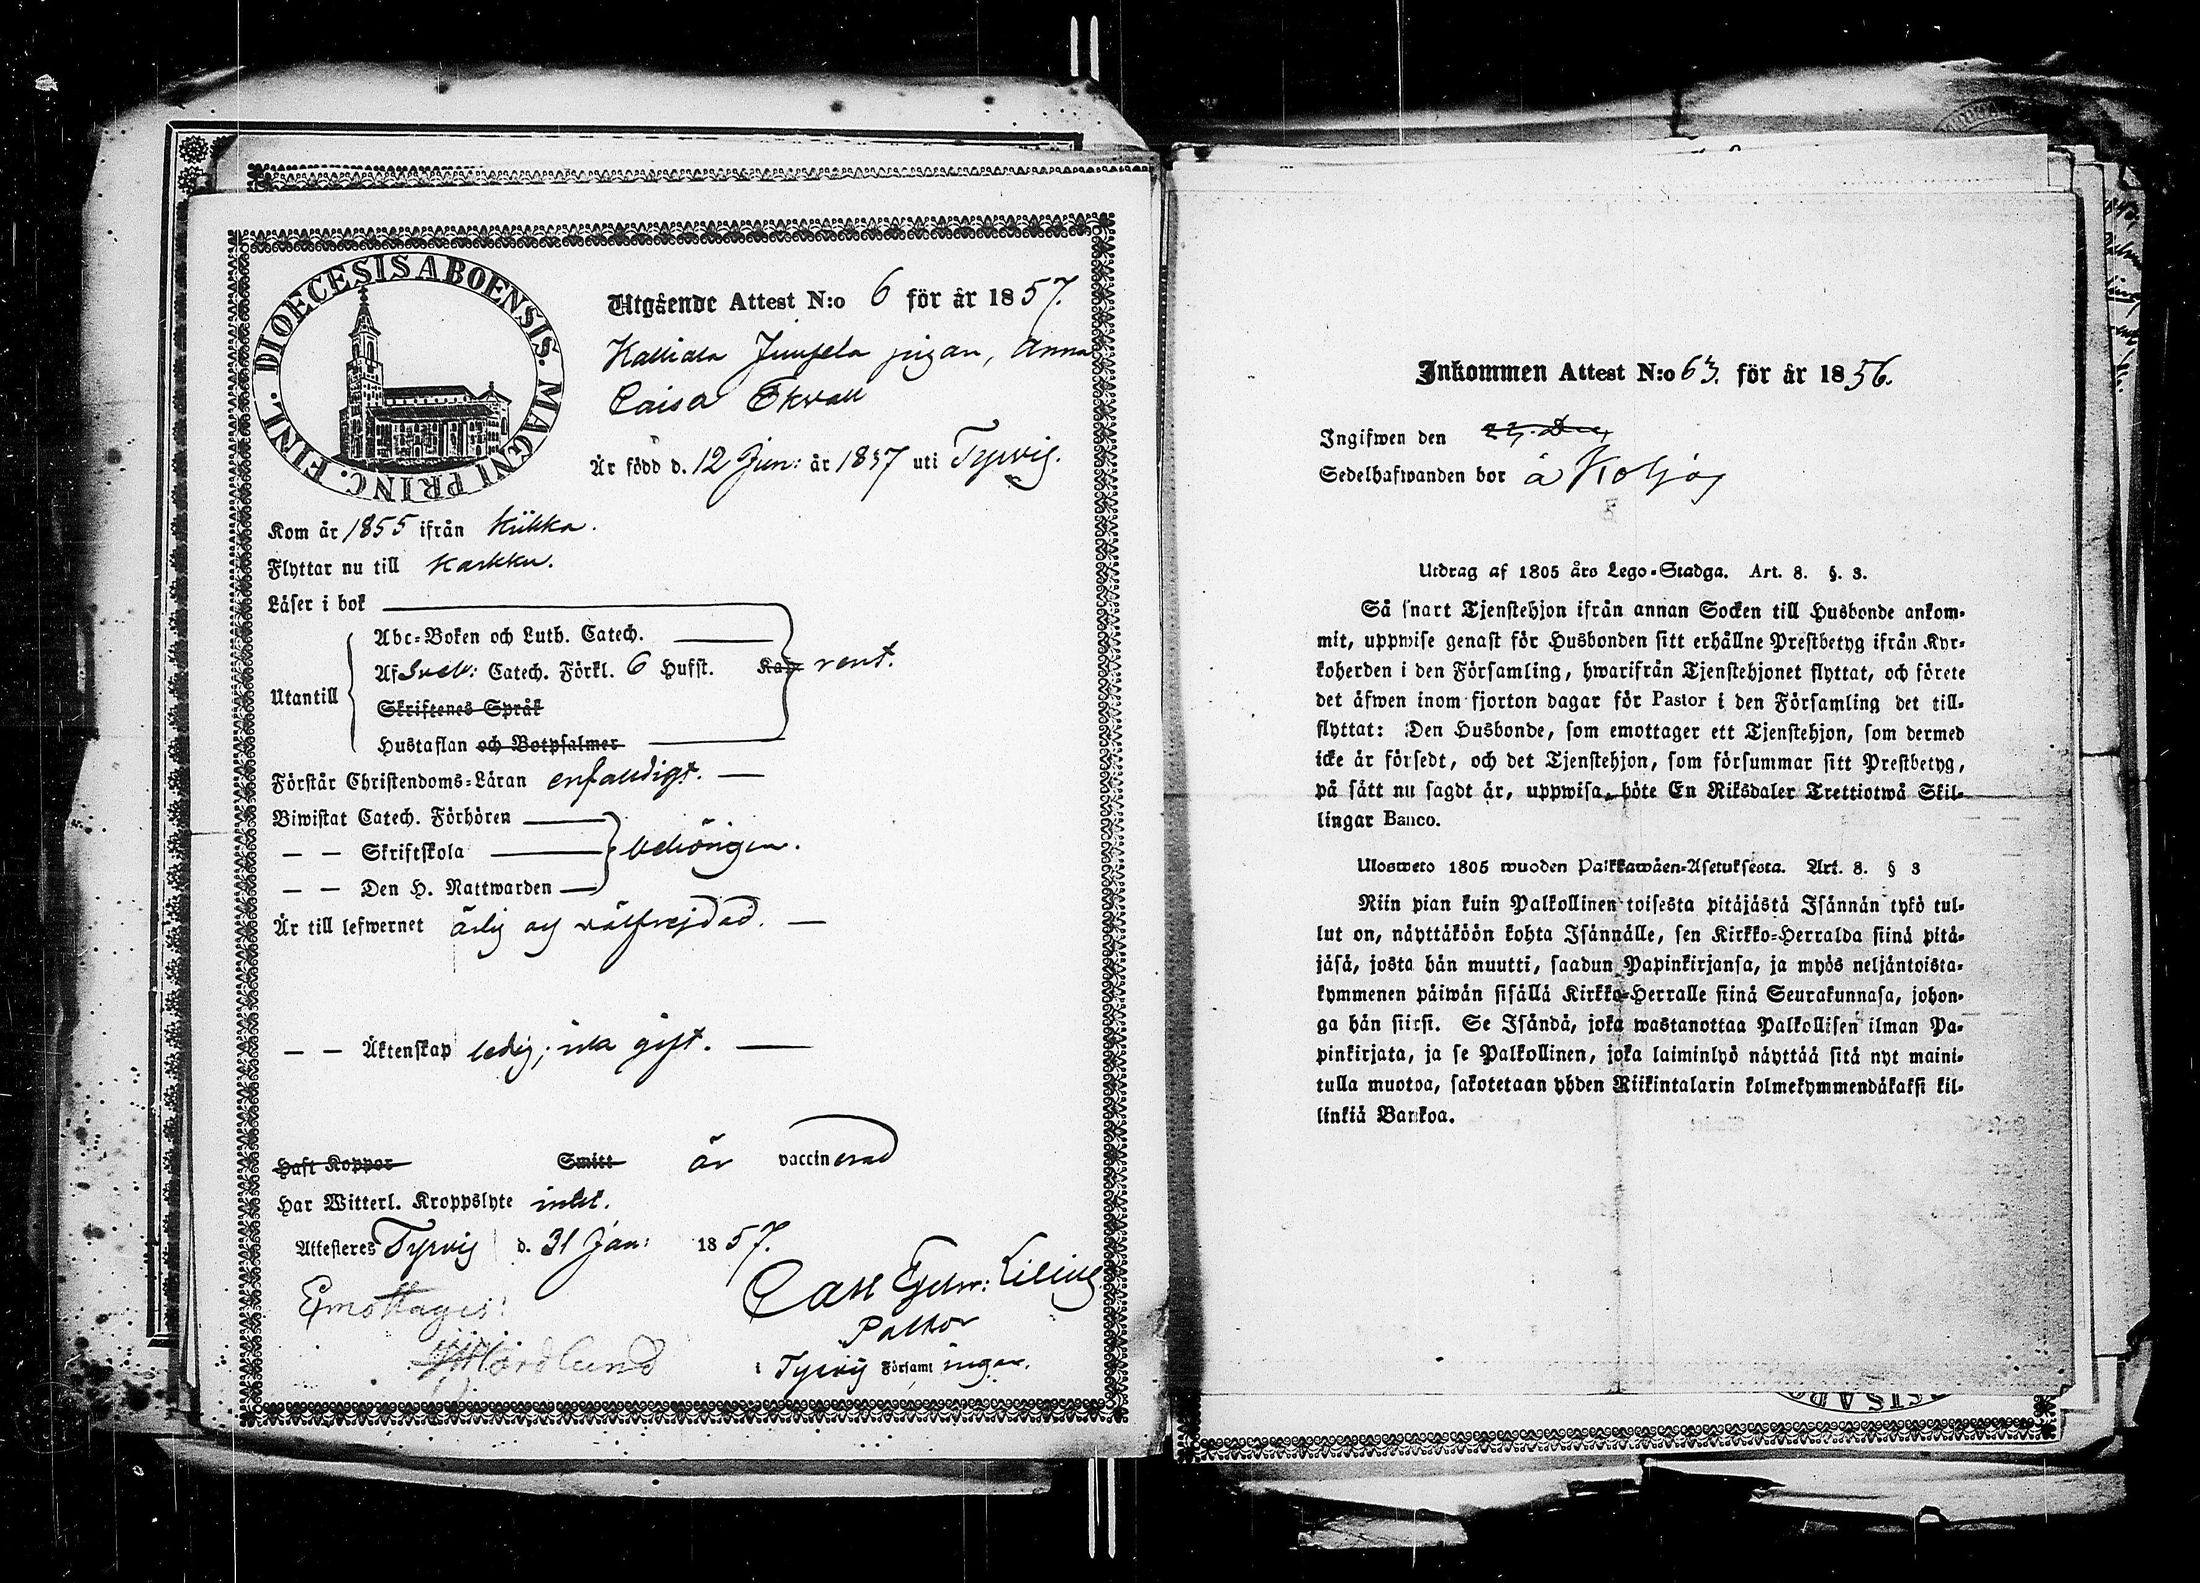 DIOECESIS ABOENSIS. MAGNI PRINC. FINL.
Utgående Attest N:o 6 för år 1857.
Kalliala Junjela pigan, Anna
Caisa Ekvall
Är född d. 12 Jun: år 1837 uti Tyrvis.
Kom år 1855 ifrån Kiikka.
Flyttar nu till Karkku.
Läser i bok
Abc-Boken och Luth. Catech.
Utantill
Af Sveb: Catech. Förkl. 6 Hufst. Kap. rent.
Skriftenes Språk
Hustaflan och Botpsalmer
Förstår Christendoms-Läran enfaldigt.
Biwistat Catech. Förhören
— — Skriftskola behörigen.
— — Den H. Nattwarden
Är till lefwernet ärlig och välfrejdad.
— — Äktenskap ledig; icke gift.
Haft Koppor Smitt är vaccinerad
Har Witterl. Kroppslyte intet.
Attesteres Tyrvis d. 31 Jan: 1857.
Carl Gust: Lilius
Emottagit:
Pastor
Nordlund
i Tyrvis Församlingar.
Inkommen Attest N:o 63. för år 1856.
Ingifwen den 27. Dec,
Sedelhafwanden bor å Koljog
8
Utdrag af 1805 års Lego-Stadga. Art. 8. §. 3.
Så snart Tjenstehjon ifrån annan Socken till Husbonde ankom-
mit, uppwise genast för Husbonden sitt erhållne Prestbetyg ifrån Kyr-
koherden i den Församling, hwarifrån Tjenstehjonet flyttat, och förete
det äfwen inom fjorton dagar för Pastor i den Församling det till-
flyttat: Den Husbonde, som emottager ett Tjenstehjon, som dermed
icke är försedt, och det Tjenstehjon, som försummar sitt Prestbetyg,
på sätt nu sagdt är, uppwisa, böte En Riksdaler Trettiotwå Skil-
lingar Banco.
Ulosweto 1805 wuoden Palkkawäen-Asetuksesta. Art. 8. § 3
Niin pian kuin Palkollinen toisesta pitäjästä Isännän tykö tul-
lut on, näyttäköön kohta Isännälle, sen Kirkko-Herralda siinä pitä-
jäsä, josta hän muutti, saadun Papinkirjansa, ja myös neljäntoista-
kymmenen päiwän sisällä Kirkko-Herralle siinä Seurakunnasa, johon-
ga hän siirsi. Se Isändä, joka wastanottaa Palkollisen ilman Pa-
pinkirjata, ja se Palkollinen, joka laiminlyö näyttää sitä nyt maini-
tulla muotoa, sakotetaan yhden Riikintalarin kolmekymmendäkaksi kil-
linkiä Bankoa.